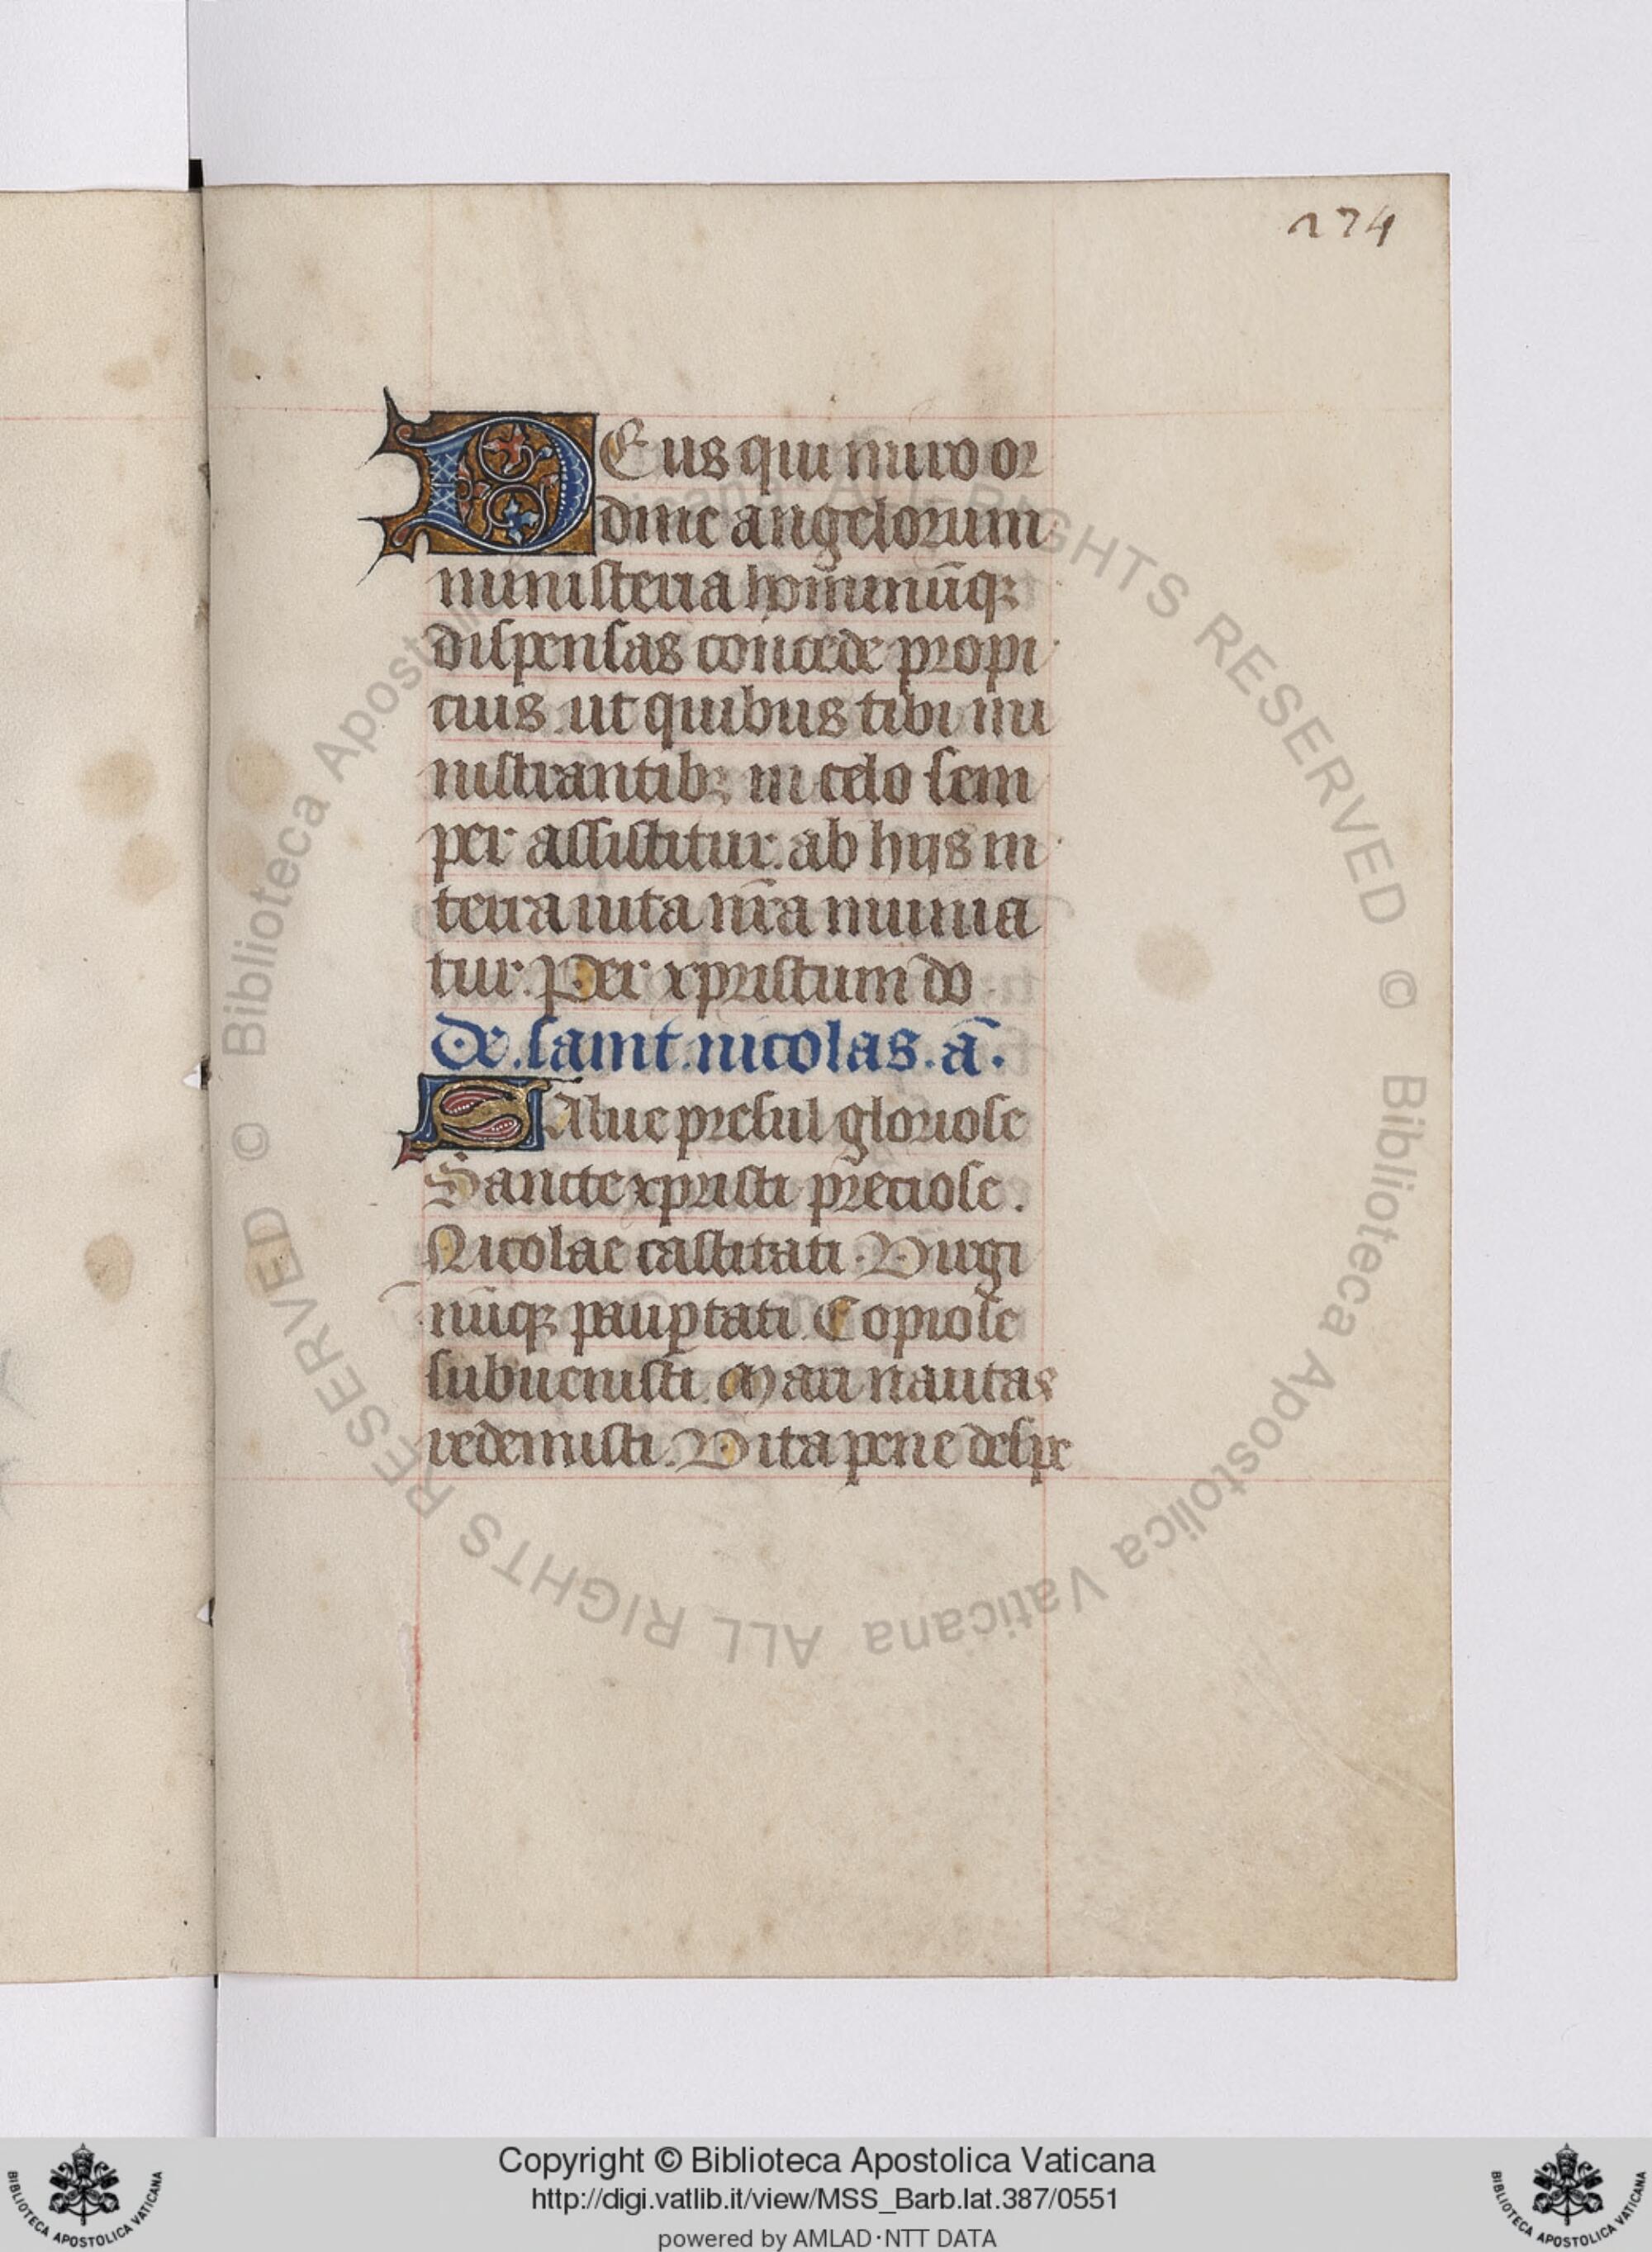 274
DEus qui miro or
dine angelorum
ministeria hominūqꝫ
dispensas concede propi
cius. ut quibus tibi mi
nistrantibꝫ in celo sem
per assistitur. ab hijs in
terra uita nr̄a munia
tur. Per xpristum do
de. saint. nicolas. a᷒.
SAlue presul gloriose
Sancte xpristi preciose.
Nicolae castitati. Virgi
nūqꝫ paup̱tati. Copiose
subuenisti. Mari nautas
redemisti. Vita pene despe
© Biblioteca Apostolica Vaticana ALL RIGHTS RESERVED © Biblioteca Apostolica Vaticana ALL RIGHTS RESERVED
Copyright © Biblioteca Apostolica Vaticana
http://digi.vatlib.it/view/MSS_Barb.lat.387/0551
powered by AMLAD·NTT DATA
BIBLIOTECA APOSTOLICA VATICANA
BIBLIOTECA APOSTOLICA VATICANA